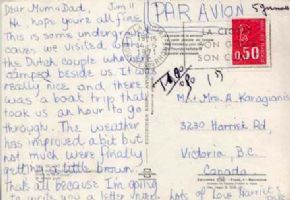 Dear Mum & Dad, Jun 11
Hi, hope you're all fine.
This is some underground
caves we visited with
the Dutch couple who were
camped beside us. It was
really nice and there
was a boat trip that
took us an hour to go
through. The weather
has improved a bit but
not much were finally
getting a little brown.
Thats all because I'm going
to write you a letter
Lots of love Harriet
PAR AVION
LA CROIX
SON
0,50
Mr. Mrs. A Karagianis
3230 Harriet Rd,
Victoria, B.C.
Canada